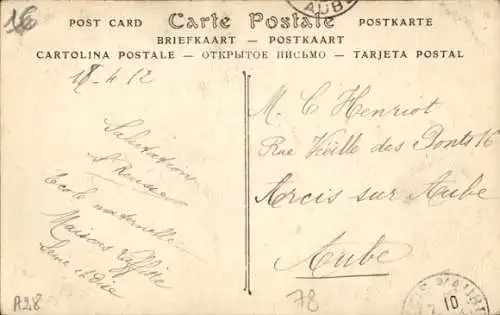 16
AUBE
POST CARD Carte Postale POSTKARTE
BRIEFKAART — POSTKAART
CARTOLINA POSTALE — ОТКРЫТОЕ ПИСЬМО — TARJETA POSTAL
18-4 12
Salutations
Ecole maternelle
Maisons Laffitte
Seine et Oise
A28
M. C Henriot
Rue Vieille des Ponts 16
Arcis sur Aube
Aube
78
S AUBE
10